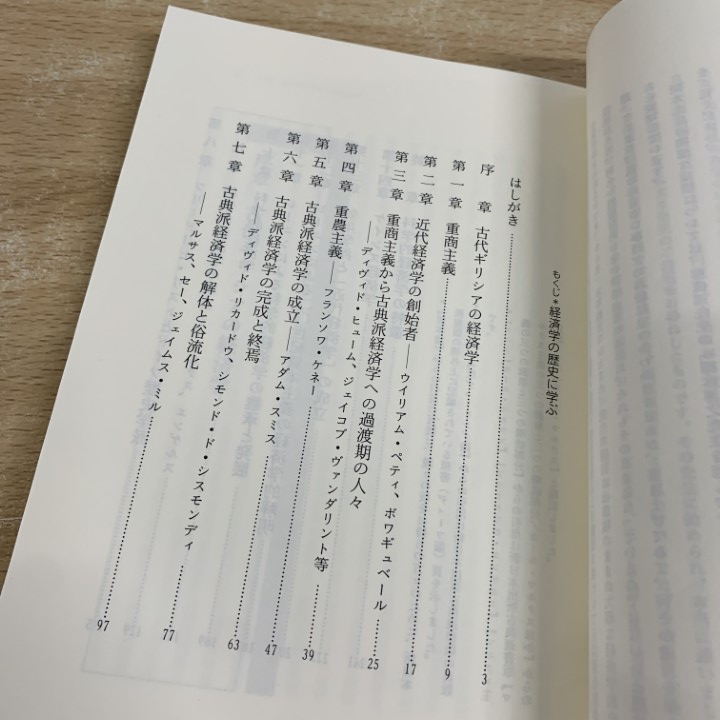 もくじ*経済学の歴史に学ぶ
はしがき……3
序章 古代ギリシアの経済学……9
第一章 重商主義……17
第二章 近代経済学の創始者――ウイリアム・ペティ、ボワギュベール……25
第三章 重商主義から古典派経済学への過渡期の人々
――ディヴィド・ヒューム、ジェイコブ・ヴァンダリント等……39
第四章 重農主義――フランソワ・ケネー……47
第五章 古典派経済学の成立――アダム・スミス……63
第六章 古典派経済学の完成と終焉
――ディヴィド・リカードウ、シモンド・ド・シスモンディ……77
第七章 古典派経済学の解体と俗流化
――マルサス、セー、ジェイムス・ミル……97